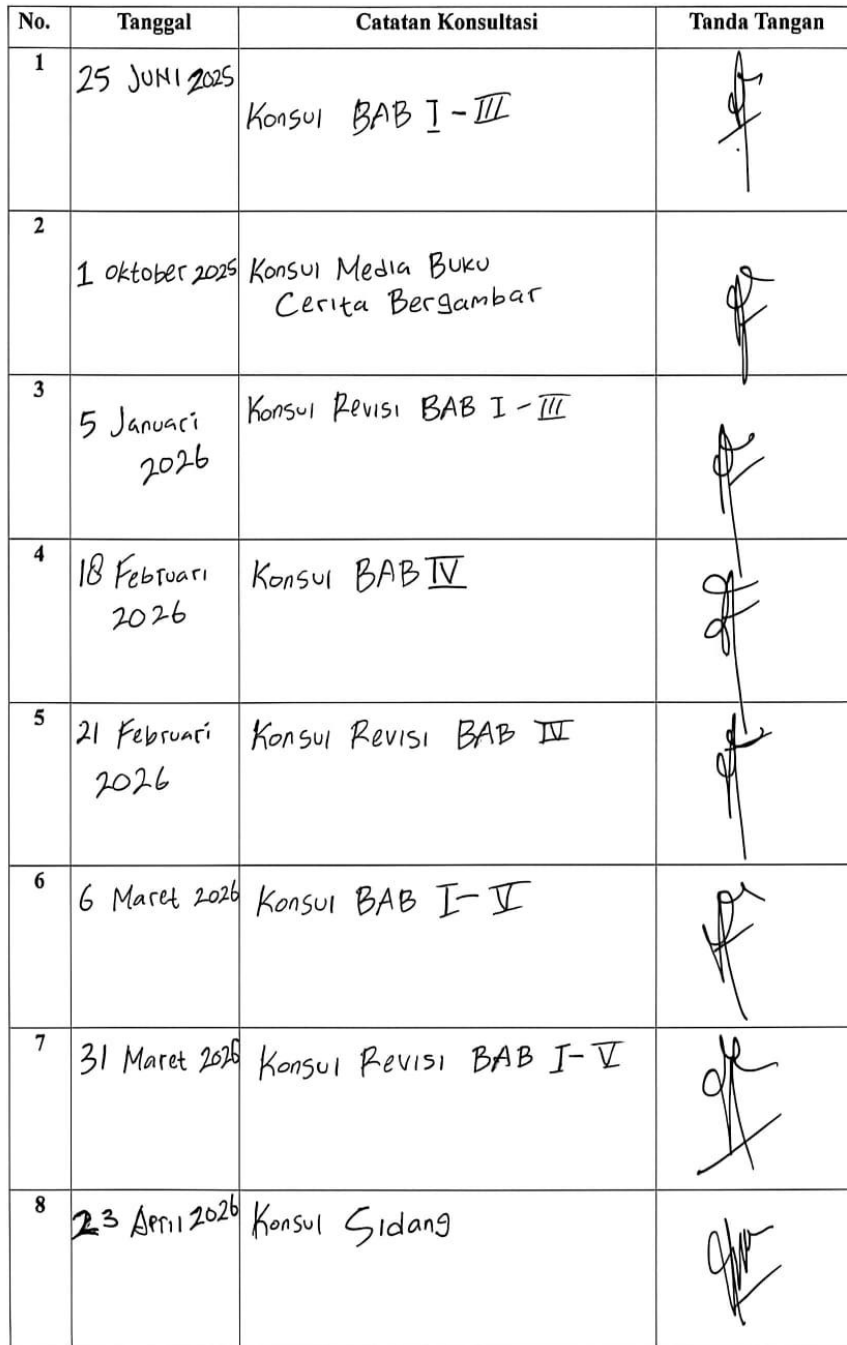 No. Tanggal Catatan Konsultasi Tanda Tangan
1 25 JUNI 2025
Konsul BAB I - III
2
1 Oktober 2025 Konsul Media Buku
Cerita Bergambar
3 Konsul Revisi BAB I - III
5 Januari
2026
4 18 Februari Konsul BAB IV
2026
5 21 Februari Konsul Revisi BAB IV
2026
6 6 Maret 2026 Konsul BAB I - V
7 31 Maret 2026 Konsul Revisi BAB I - V
8 23 April 2026 Konsul Sidang